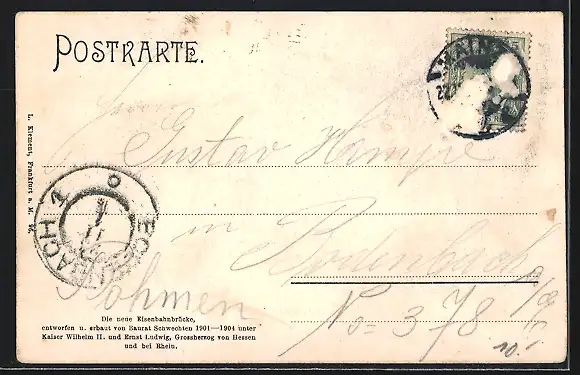 POSTKARTE.
Herrn
Gustav Hampe
in Bodenbach
Böhmen
No= 378
L. Klement, Frankfurt a. M.
Die neue Eisenbahnbrücke,
entworfen u. erbaut von Baurat Schwechten 1901—1904 unter
Kaiser Wilhelm II. und Ernst Ludwig, Grossherzog von Hessen
und bei Rhein.
10.